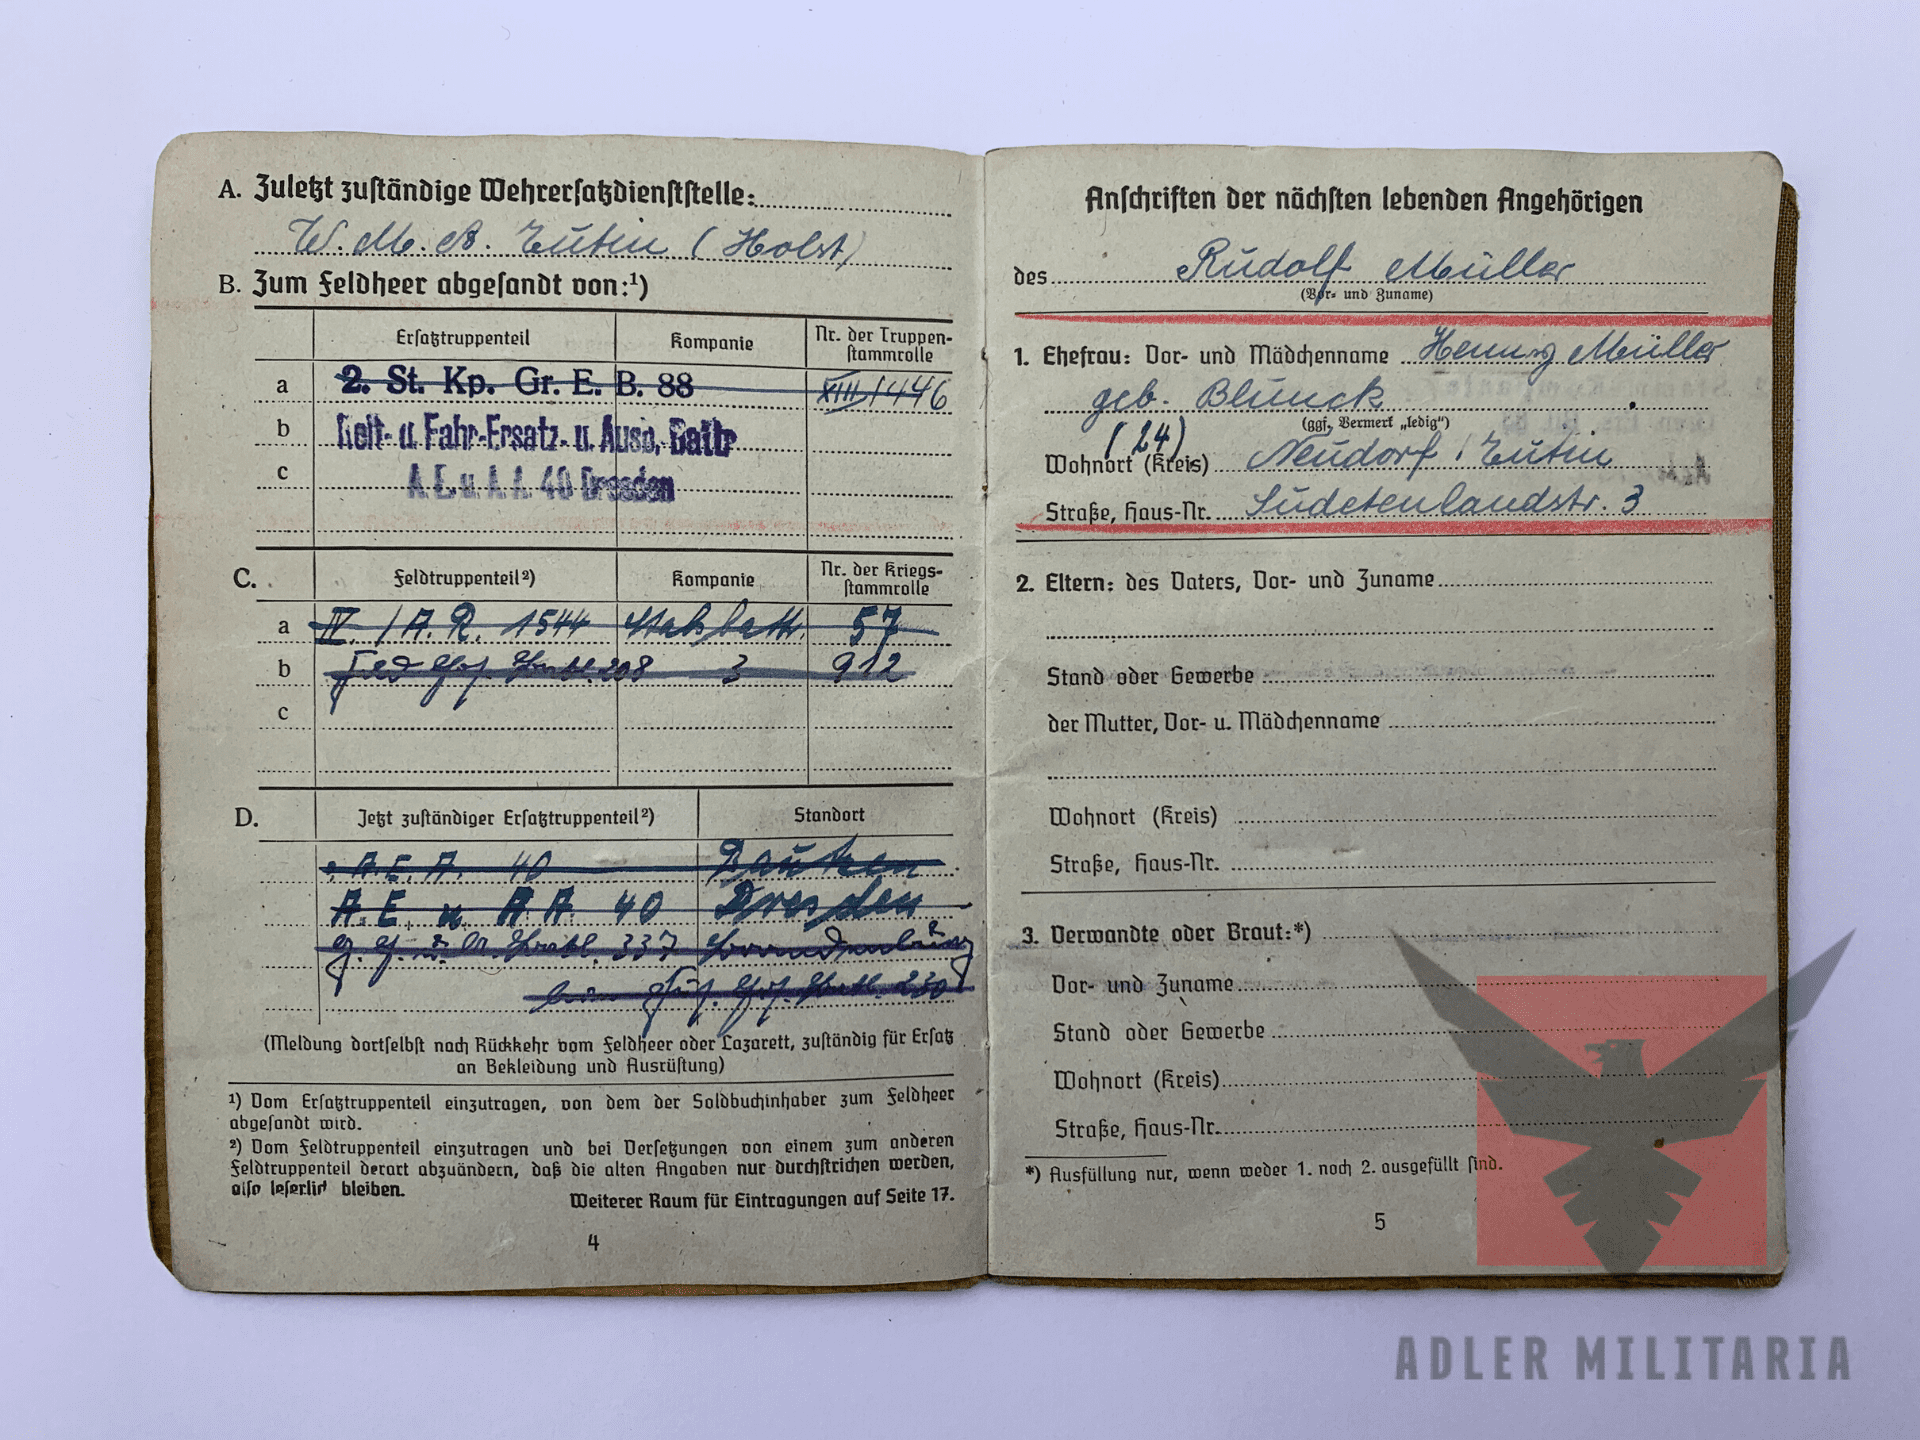 A. Zuletzt zuständige Wehrersatzdienststelle:
W. M. A. Eutin (Holst)
B. Zum Feldheer abgesandt von:¹)
Ersatztruppenteil Kompanie Nr. der Truppen-
stammrolle
a 2. St. Kp. Gr. E. B. 88 XIII/1446
b Reit- u Fahr-Ersatz- u. Ausb.
c A. E. u. A. A. 40 Dresden
C. Feldtruppenteil²) Kompanie Nr. der Kriegs-
stammrolle
a IV. / A. R. 1544 Stabsbattr. 57
b 208 3 912
c
D. Jetzt zuständiger Ersatztruppenteil²) Standort
A. E. A. 40 Bautzen
A. E. u. A A. 40 Dresden
337 Brandenburg
250
(Meldung dortselbst nach Rückkehr vom Feldheer oder Lazarett, zuständig für Ersatz
an Bekleidung und Ausrüstung)
¹) Vom Ersatztruppenteil einzutragen, von dem der Soldbuchinhaber zum Feldheer
abgesandt wird.
²) Vom Feldtruppenteil einzutragen und bei Versetzungen von einem zum anderen
Feldtruppenteil derart abzuändern, daß die alten Angaben nur durchstrichen werden,
also leserlich bleiben.
Weiterer Raum für Eintragungen auf Seite 17.
4
Anschriften der nächsten lebenden Angehörigen
des Rudolf Müller
(Vor- und Zuname)
1. Ehefrau: Vor- und Mädchenname Henny Müller
geb. Blunck
(ggf. Vermerk „ledig“)
(24)
Wohnort (Kreis) Neudorf / Eutin
Straße, Haus-Nr. Sudetenlandstr. 3
2. Eltern: des Vaters, Vor- und Zuname
Stand oder Gewerbe
der Mutter, Vor- u. Mädchenname
Wohnort (Kreis)
Straße, Haus-Nr.
3. Verwandte oder Braut:*)
Vor- und Zuname
Stand oder Gewerbe
Wohnort (Kreis)
Straße, Haus-Nr.
*) Ausfüllung nur, wenn weder 1. noch 2. ausgefüllt sind.
5
ADLER MILITARIA